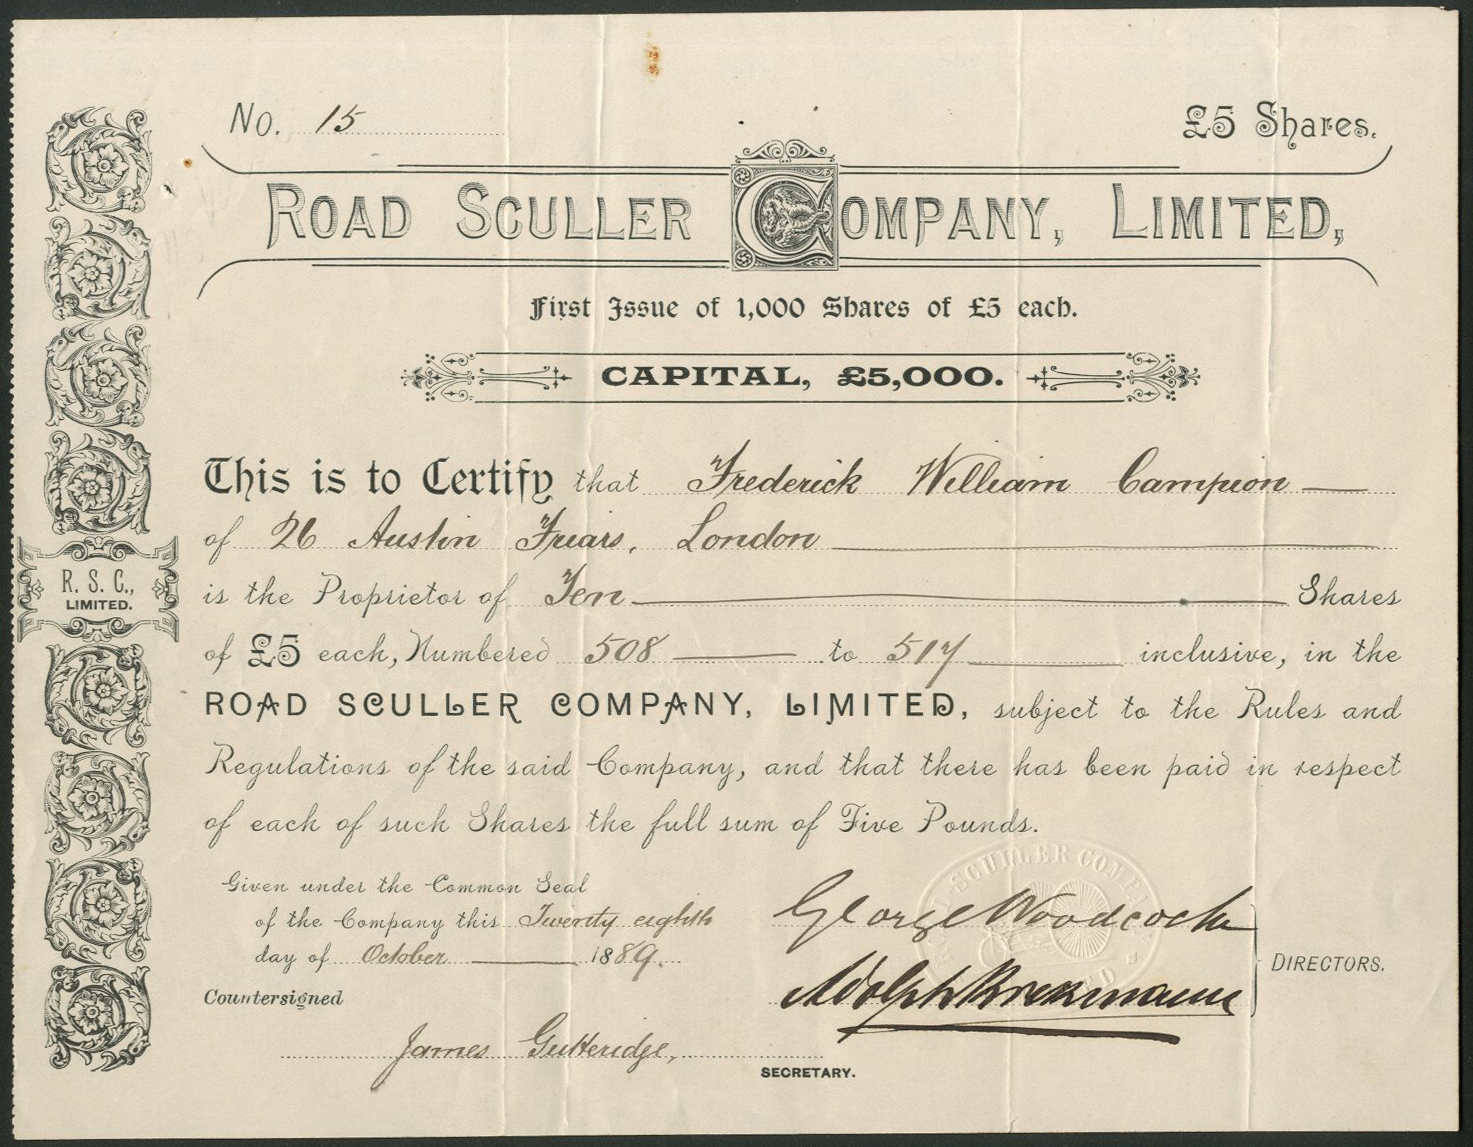 No. 15
£5 Shares.
ROAD SCULLER COMPANY, LIMITED,
First Issue of 1,000 Shares of £5 each.
CAPITAL, £5,000.
This is to Certify that Frederick William Campion
of 26 Austin Friars, London
is the Proprietor of Ten Shares
of £5 each, Numbered 508 to 517 inclusive, in the
ROAD SCULLER COMPANY, LIMITED, subject to the Rules and
Regulations of the said Company, and that there has been paid in respect
of each of such Shares the full sum of Five Pounds.
R. S. C.,
LIMITED.
Given under the Common Seal
of the Company this Twenty eighth
day of October 1889.
SCULLER COMPANY
George Woodcock
Adolph
DIRECTORS.
Countersigned
James Gutteridge,
SECRETARY.